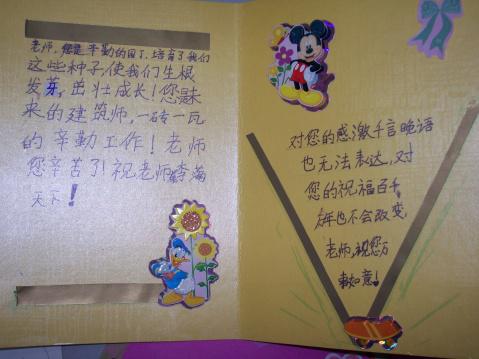 老师,您是辛勤的园丁,培育了我们
这些种子使我们生根
发芽,茁壮成长!您是未
来的建筑师,一砖一瓦
的辛勤工作!老师
您辛苦了!祝老师李满
天下!
对您的感激千言晚语
也无法表达,对
您的祝福百千
万年也不会改变,
老师,祝您万
事如意!